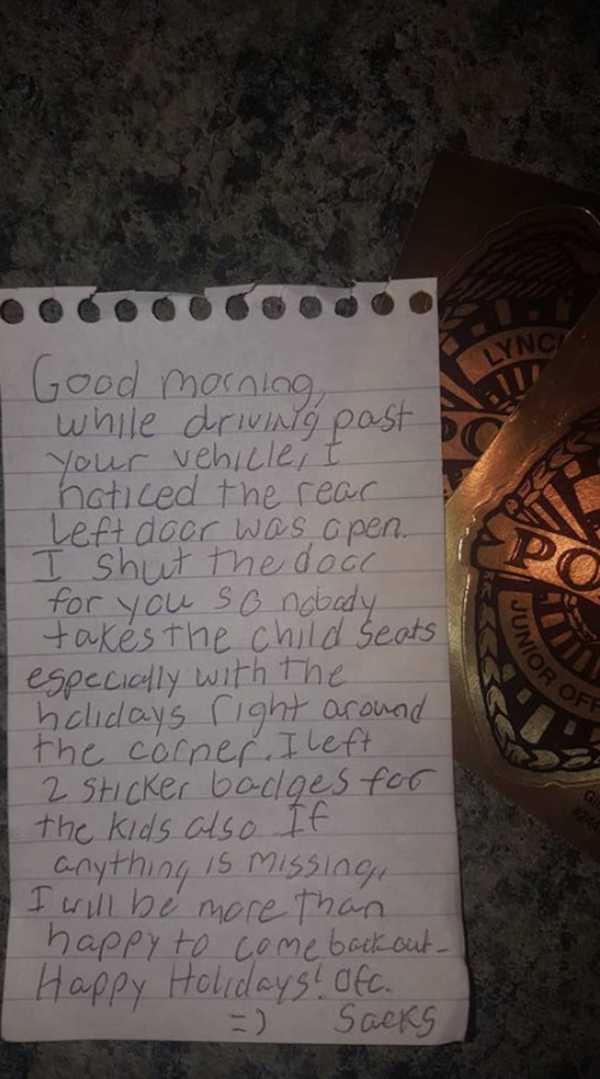 Good morning,
while driving past
your vehicle, I
noticed the rear
left door was open.
I shut the door
for you so nobody
takes the child seats
especially with the
holidays right around
the corner. I left
2 sticker badges for
the kids also If
anything is missing,
I will be more than
happy to come back out-
Happy Holidays! Ofc.
=) Sacks
LYNC
PO
PO
JUNIOR OFF